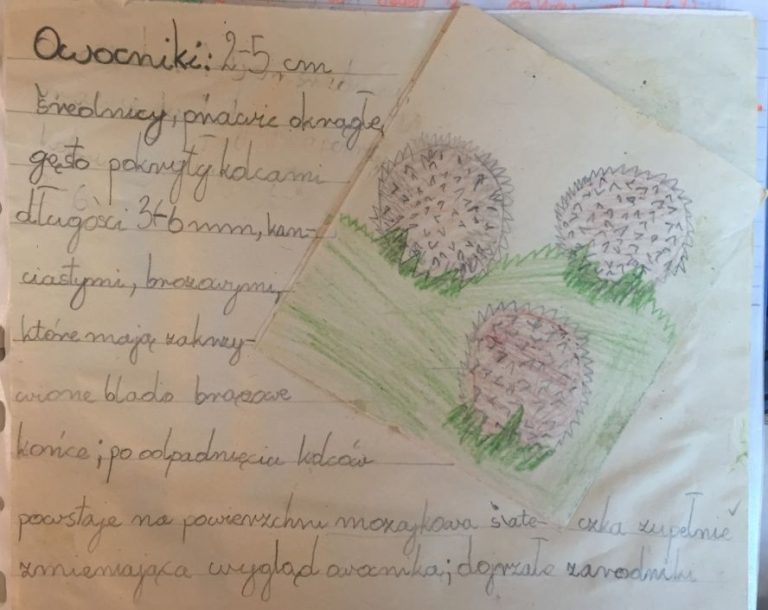 Owocniki: 2-5 cm
średnicy, prawie okrągłe,
gęsto pokryty kolcami
długości 3-6 mm, kan-
ciastymi, brązowymi,
które mają zakrzy-
wione blado brązowe
końce; po odpadnięciu kolców
powstaje na powierzchni mozajkowa siate- czka zupełnie
zmieniająca wygląd owocnika; dojrzałe zarodniki